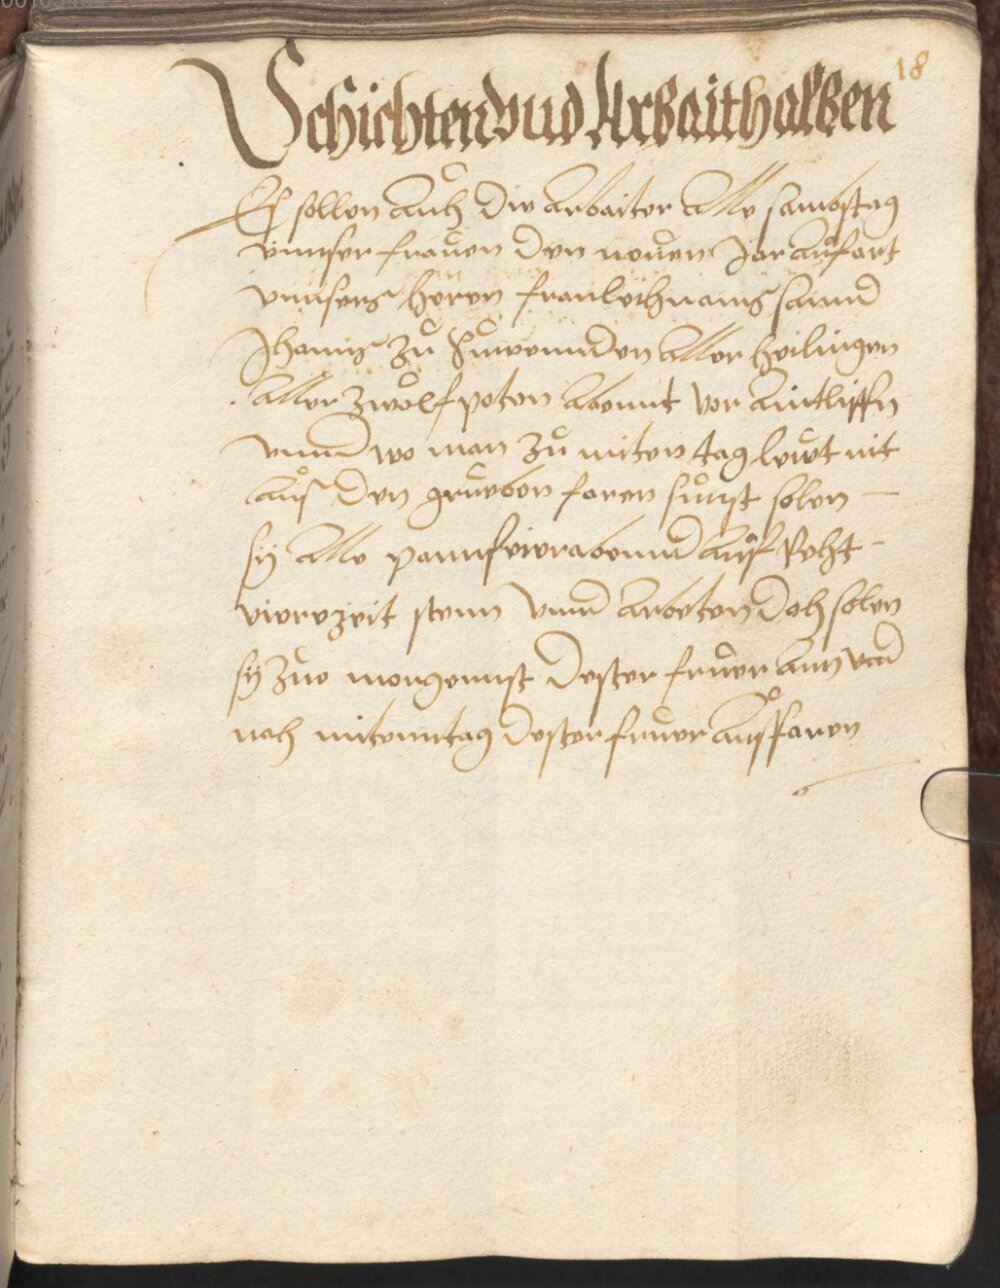 18
Schichten vnd Arbaithalben
Es sollen auch die arbaiter alle sambstag
vnnser frauen den neuen Jar aufart
vnnsers heren fronleichnams sannd
Johanns zu Suwennden aller heilingen
aller zwolfpoten abennt vor aintliffn
vnnd wo man zu miten tag leut nit
aus den grueben faren sunst solen
sy alle pannfeierabennd auf Recht
vierezeit stenn vnnd arbeten doch solen
sy zue morgennst dester fruer ann vnd
nach mitenntag dester fruer ausfaren